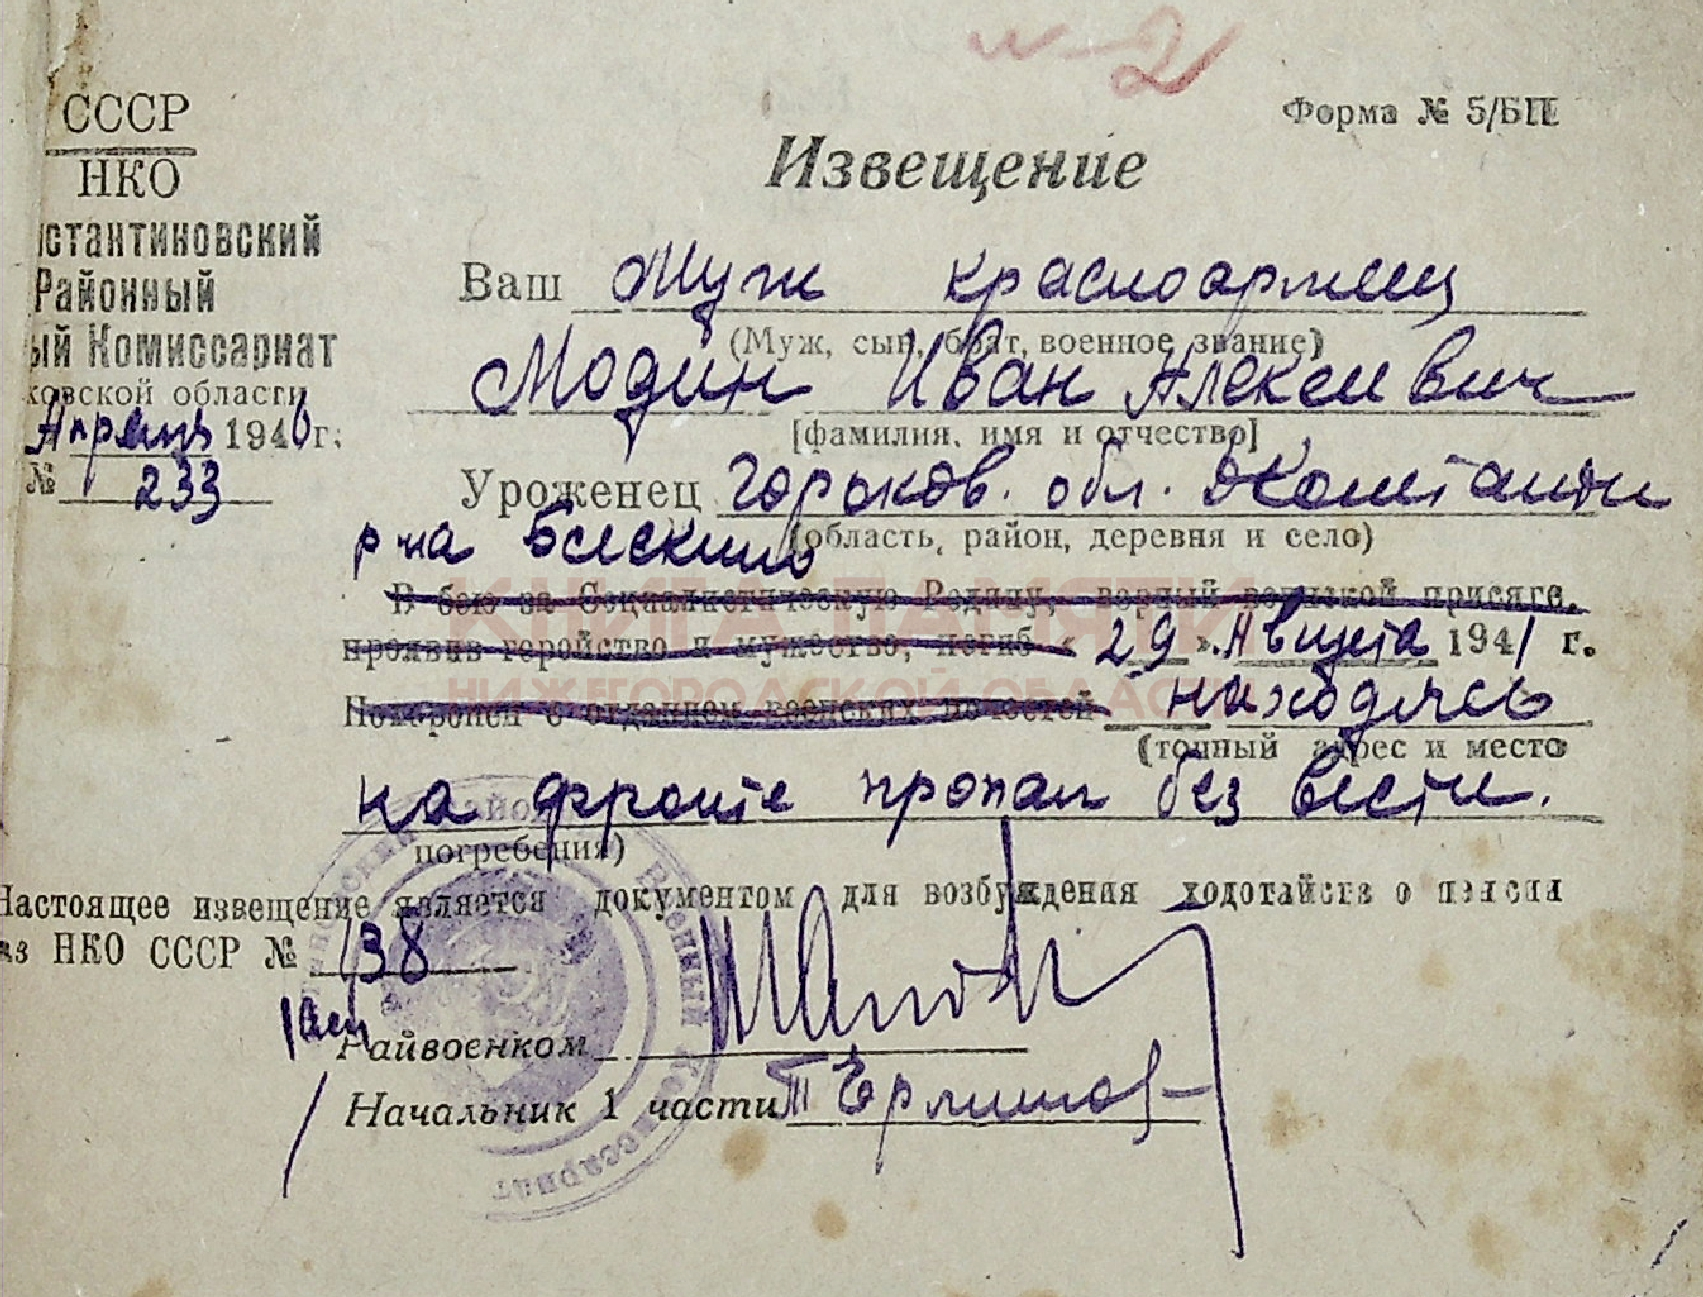 н-2
Форма № 5/БП
СССР
НКО
нстантиновский
Районный
ый Комиссариат
ковской области
Апрель 1946 г.
№ 233
Извещение
Ваш Муж красноармеец
(Муж, сын, брат, военное звание)
Модин Иван Алексеевич
[фамилия, имя и отчество]
Уроженец Горьков. обл. Д Константи
(область, район, деревня и село)
р на
В бою за Социалистическую Родину, верный воинской присяге,
проявив геройство и мужество, погиб « 29 » Августа 1941 г.
Похоронен с отданием воинских почестей находясь
(точный адрес и место
на фронте пропал без вести.
погребения)
Настоящее извещение является документом для возбуждения ходотайств о пенсии
аз НКО СССР № 138
Райвоенком
Начальник 1 части
КНИГА ПАМЯТИ
НИЖЕГОРОДСКОЙ ОБЛАСТИ